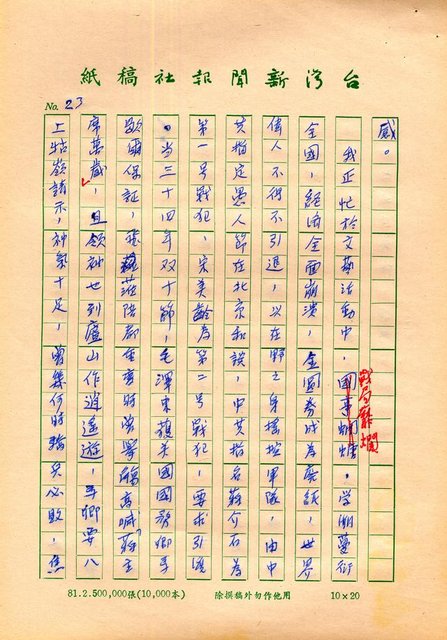 台灣新聞報社稿紙
No. 23
威。
我正忙於文藝活動中，國事蜩螗，學潮蔓衍
戰局靡爛
全國，經濟全面崩潰，金圓券成為廢紙，世界
偉人不得不引進，以在野之身搖控軍隊，由中
共指定愚人節在北京和談，中共指名蔣介石為
第一号戰犯，宋美齡為第二号戰犯，要求引渡
。當三十四年双十節，毛澤東
保證，飛蒞陪都重慶時曾舉觴高喊蔣主
席萬歲，且領袖也列廬山作逍遙遊，要八
上牯嶺請示，神氣十足，曾幾何時驕兵必敗，焦
81.2.500,000張(10,000本) 除撰稿外勿作他用 10×20